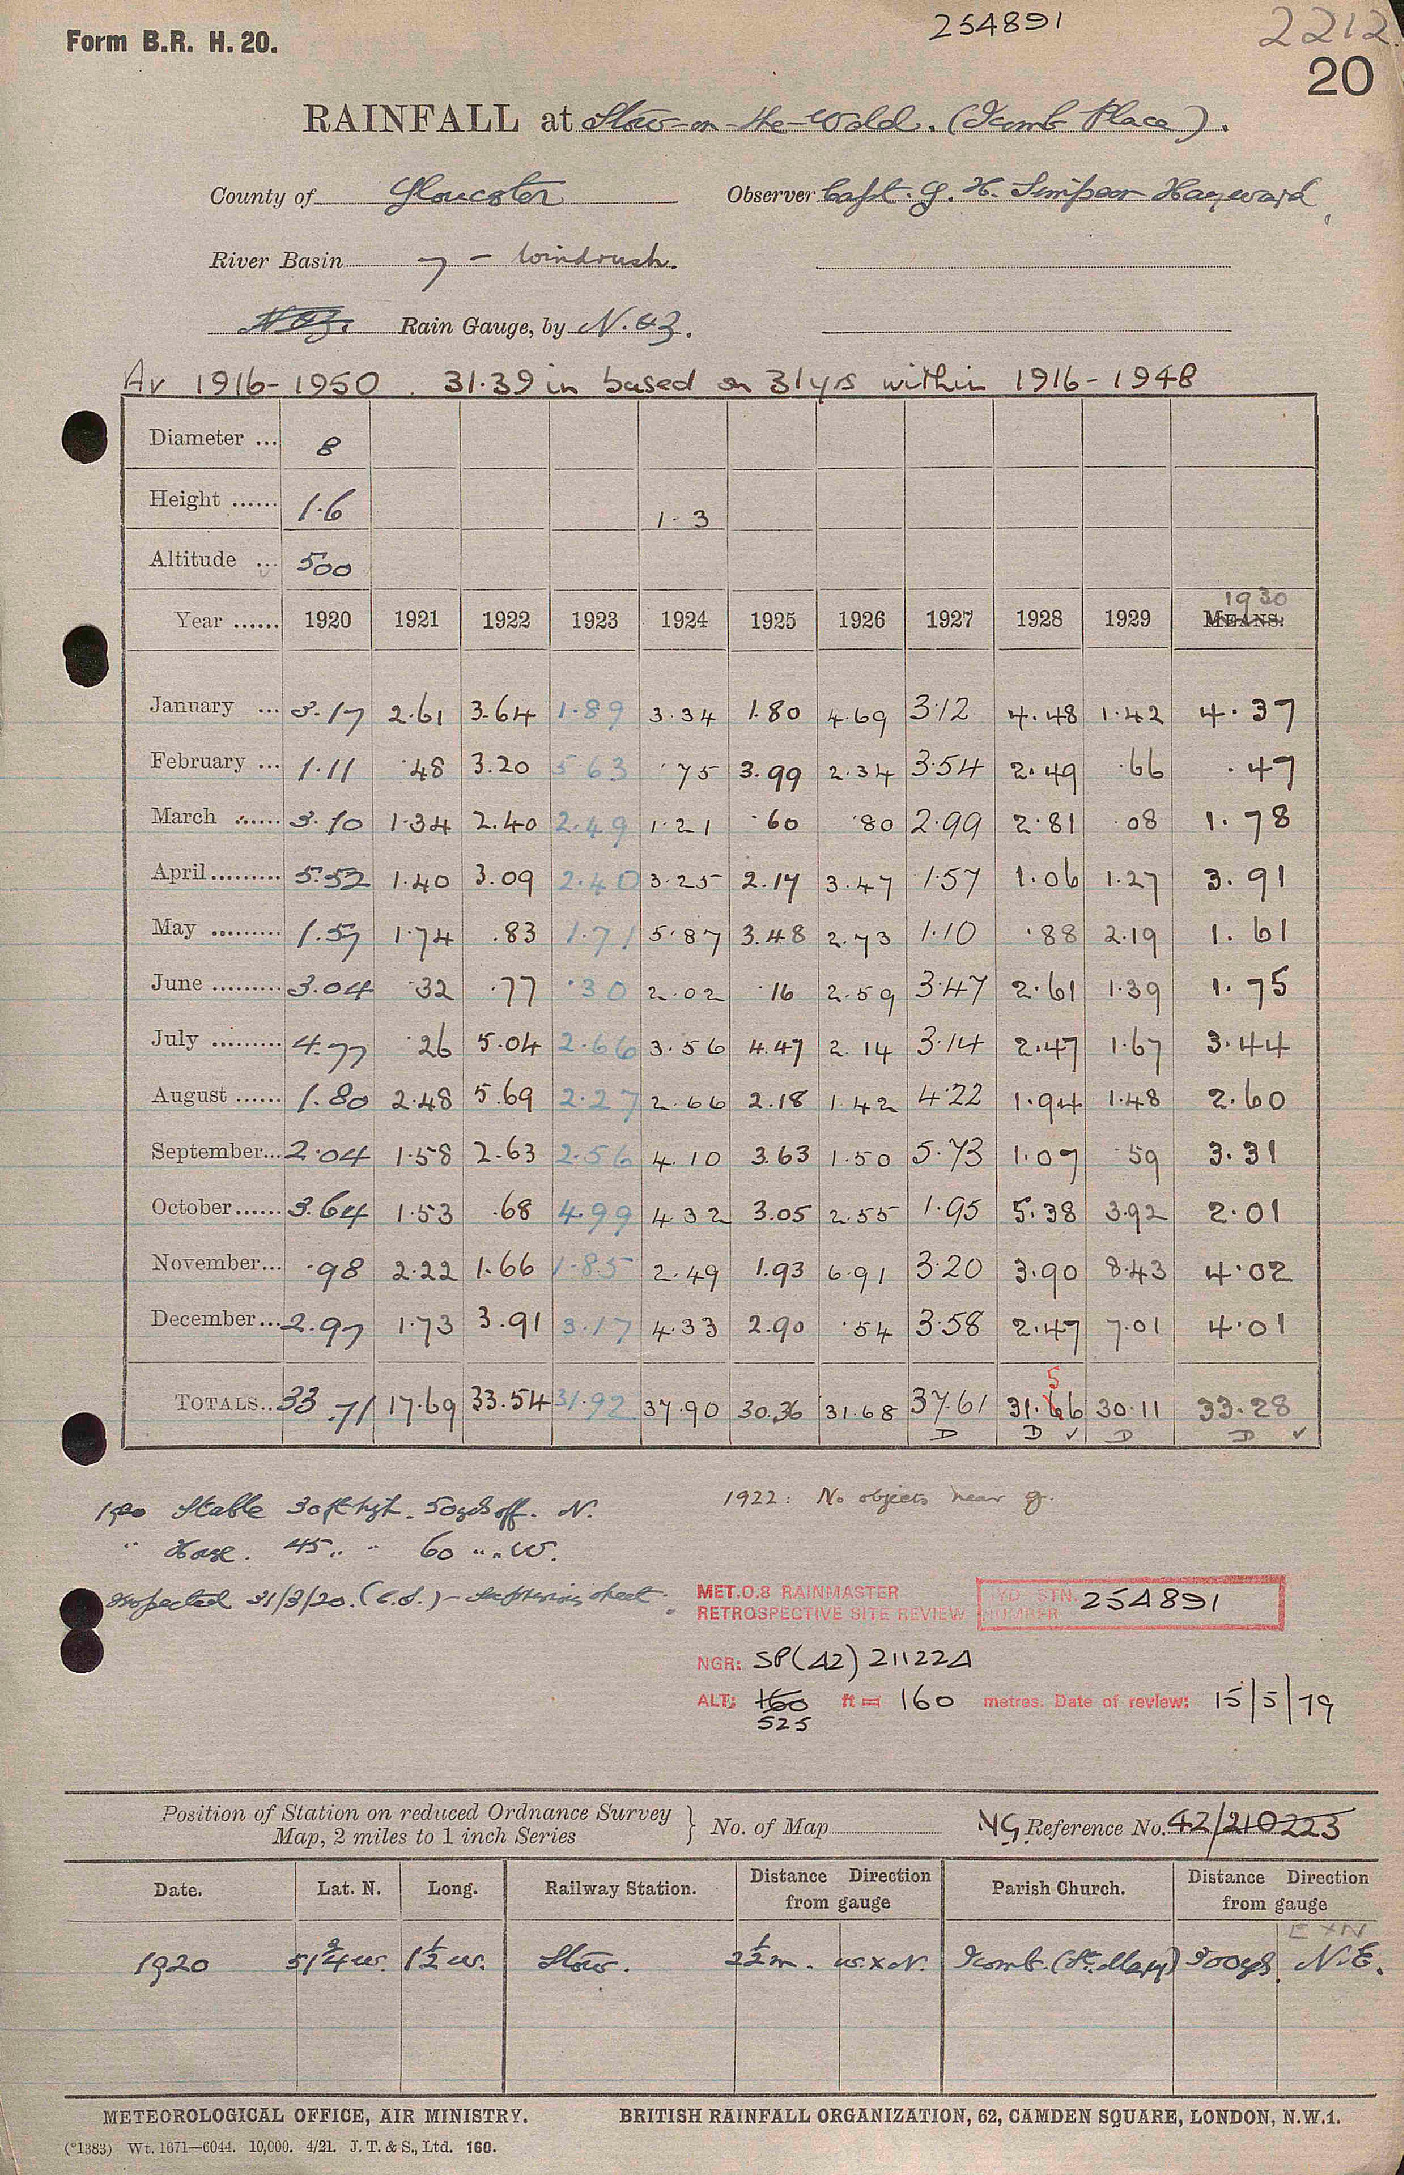 254891
2212.
Form B.R. H. 20.
20
RAINFALL at Stow-on-the-Wold. (Icomb Place).
County of Gloucester Observer Capt. G. H. Simpson Hayward,
River Basin 7 - Windrush.
N43. Rain Gauge, by N.43.
Av 1916-1950. 31.39 in based on 31 yrs within 1916-1948
Diameter ... 8
Height ...... 1.6 1.3
Altitude ... 500
Year ...... 1920 1921 1922 1923 1924 1925 1926 1927 1928 1929 MEANS. 1930
January ... 3.17 2.61 3.64 1.89 3.34 1.80 4.69 3.12 4.48 1.42 4.37
February ... 1.11 .48 3.20 5.63 .75 3.99 2.34 3.54 2.49 .66 .47
March ...... 3.10 1.34 2.40 2.49 1.21 .60 .80 2.99 2.81 .08 1.78
April ......... 5.52 1.40 3.09 2.40 3.25 2.17 3.47 1.57 1.06 1.27 3.91
May ......... 1.57 1.74 .83 1.71 5.87 3.48 2.73 1.10 .88 2.19 1.61
June ......... 3.04 .32 .77 .30 2.02 .16 2.59 3.47 2.61 1.39 1.75
July ......... 4.77 .26 5.04 2.66 3.56 4.47 2.14 3.14 2.47 1.67 3.44
August ...... 1.80 2.48 5.69 2.27 2.66 2.18 1.42 4.22 1.94 1.48 2.60
September... 2.04 1.58 2.63 2.56 4.10 3.63 1.50 5.73 1.07 .59 3.31
October...... 3.64 1.53 .68 4.99 4.32 3.05 2.55 1.95 5.38 3.92 2.01
November... .98 2.22 1.66 1.85 2.49 1.93 6.91 3.20 3.90 8.43 4.02
December... 2.97 1.73 3.91 3.17 4.33 2.90 .54 3.58 2.47 7.01 4.01
5
TOTALS.. 33.71 17.69 33.54 31.92 37.90 30.36 31.68 37.61 31.66 30.11 33.28
D D ✓ D D ✓
1920 Stable 30 ft hgt. 50 yds off. N.
" House. 45 " " 60 " " W.
Inspected 31/3/20. (C.S.) -
1922: No objects near g.
MET.O.8 RAINMASTER
RETROSPECTIVE SITE REVIEW
STN. NUMBER 254891
NGR: SP(42) 211224
ALT: 160 ft = 160 metres. Date of review: 15/5/79
525
Position of Station on reduced Ordnance Survey Map, 2 miles to 1 inch Series } No. of Map NG Reference No. 42/210223
Date. Lat. N. Long. Railway Station. Distance Direction from gauge Parish Church. Distance Direction from gauge
E X N
1920 51 3/4 w. 1 1/2 w. Stow. 2 1/2 m. W x N. Icomb. (St. Mary) 300 yds. N.E.
METEOROLOGICAL OFFICE, AIR MINISTRY. BRITISH RAINFALL ORGANIZATION, 62, CAMDEN SQUARE, LONDON, N.W.1.
(*1383) Wt. 1671—6044. 10,000. 4/21. J. T. & S., Ltd. 160.